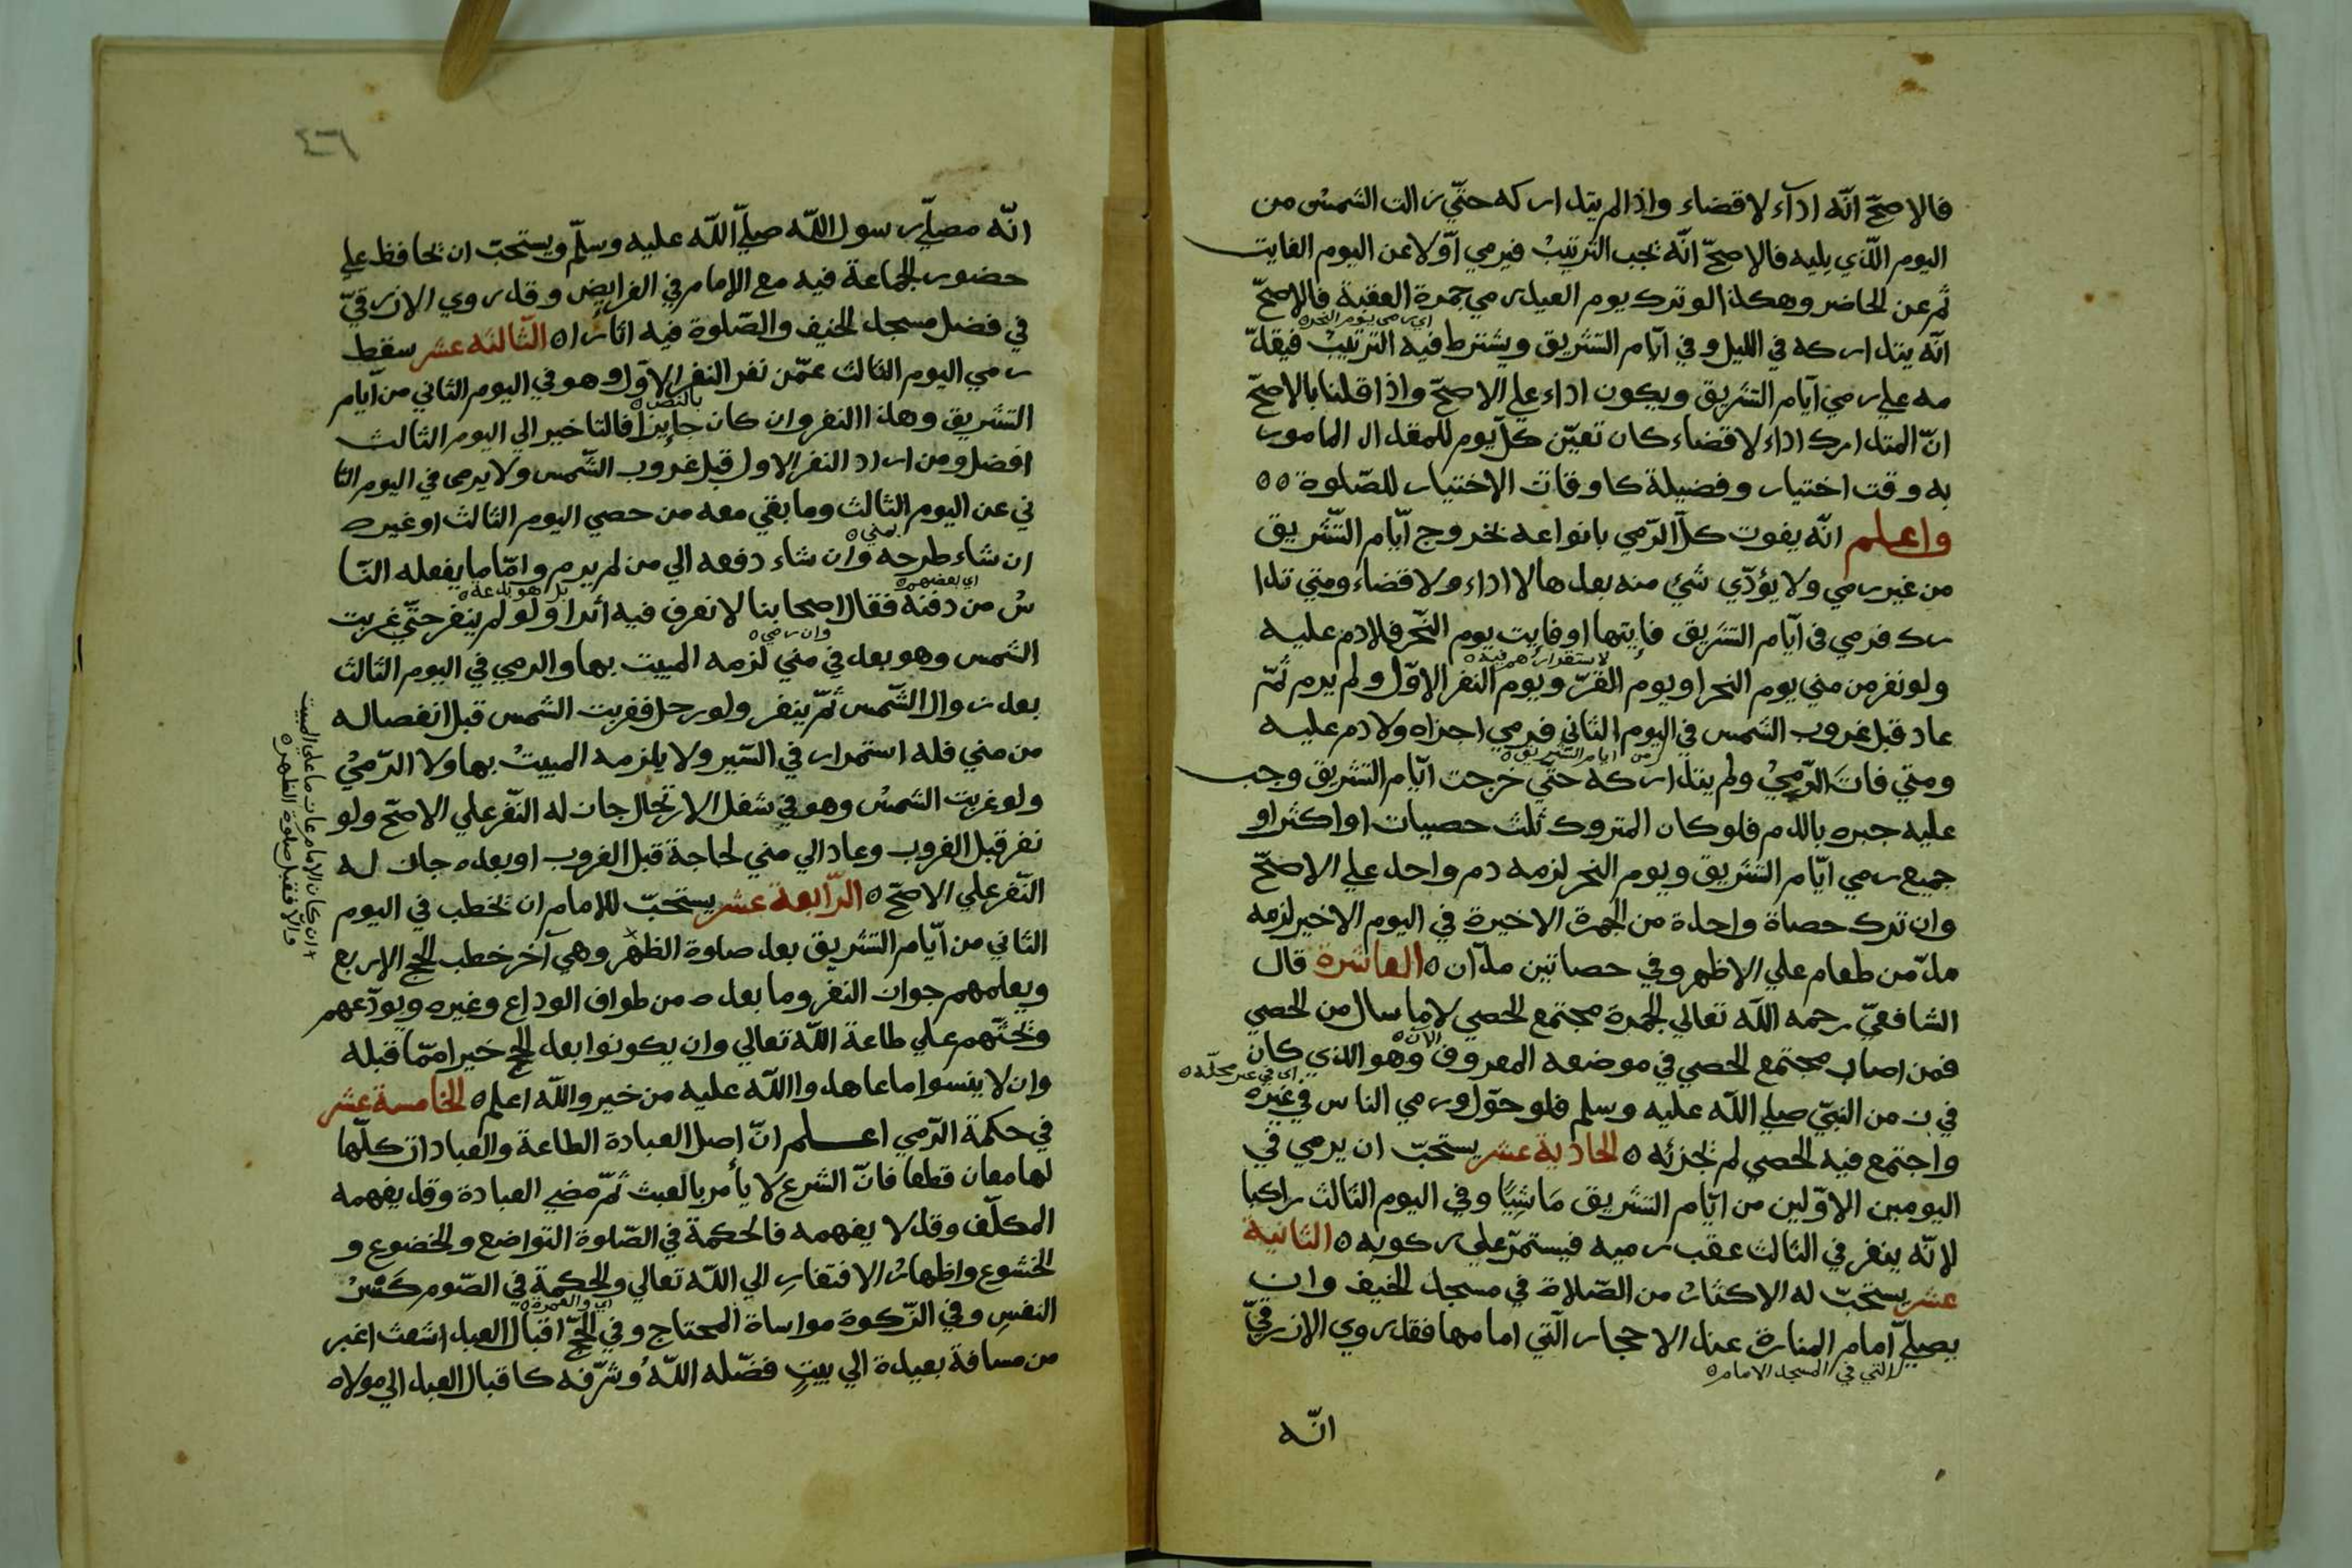 فالاصحّ انّه ادآء لا قضاء واذا لم يتدارکه حتّي زالت الشمسُ من
اليوم الّذي يليه فالاصحّ انّه يجب الترتيبُ فيرمي اوّلا عن اليوم الفايت
ثم عن الحاضر وهكذا لو ترك يوم العيد رمي جمرة العقبة فالاصحّ
اي رمى يوم النحر
انّه يتداركه في الليل وفي ايّام التشريق ويشترط فيه الترتيبُ فيقدّ
مه علي رمي ايّام التشريق ويكون اداء علي الاصحّ واذا قلنا بالاصحّ
انّ المتدارك اداء لا قضاء كان تعيّن كلّ يوم للمقدار المامور
به وقت اختيار وفضيلة كاوقات الاختيار للصّلوة ٥٥
واعلم انّه يفوت كلّ الرّمي بانواعه بخروج ايّام التّشريق
من غير رمي ولا يؤدّي شيء منه بعدها لا اداء ولا قضاء ومتي تدا
رك فرمي في ايّام التشريق فايتها او فايت يوم النّحر فلا دم عليه
لاستقرارهم فيه
ولو نفر من مني يوم النحر او يوم القرّ ويوم النفر الاوّل ولم يرم ثمّ
عاد قبل غروب الشمس في اليوم الثاني فرمي اجزاه ولا دم عليه
من ايام التشريق
ومتي فاتَ الرّميُ ولم يتداركه حتّي خرجت ايّام التشريق وجب
عليه جبره بالدم فلو كان المتروك ثلث حصيات او اكثر او
جميع رمي ايّام التّشريق ويوم النحر لزمه دم واحد علي الاصحّ
وان ترك حصاة واحدة من الجمرة الاخيرة في اليوم الاخير لزمه
مدّ من طعام علي الاظهر وفي حصاتين مدّان ٥ العاشرة قال
الشافعيّ رحمه الله تعالي الجمرة مجتمع الحصي لا ما سال من الحصي
فمن اصاب مجتمع الحصي في موضعه المعروف وهو الذي كان
الآن
اي في غير محلّه
في زمن النبيّ صلي الله عليه وسلم فلو حوّل ورمي الناس في غيره
واجتمع فيه الحصي لم يجزئه ٥ الحادية عشر يستحبّ ان يرمي في
اليومين الاوّلين من ايّام التشريق مَاشِيًا وفي اليوم الثالث راكبا
لانّه ينفر في الثالث عقب رميه فيستمرّ علي ركوبه ٥ الثانية
عشر يستحبّ له الاكثارُ من الصّلاة في مسجد الخيف وان
يصلّي امام المنارة عند الاحجار الّتي امامها فقد روي الازرقيّ
التي في المسجد الامام
انّه
٤٦
انّه مصلّي رسول اللّه صلّي اللّه عليه وسلّم ويستحبّ ان يحافظ علي
حضور الجماعة فيه مع الامام في الفرايض وقد روي الازرقيّ
في فضل مسجد الخيف والصّلوة فيه اثارا ٥ الثّالثة عشر سقط
رمي اليوم الثالث عمّن نفر النفر الاوّل وهو في اليوم الثاني من ايّام
بالنص
التشريق وهذا النفر وان كان جايزا فالتاخير الي اليوم الثالث
افضل ومن اراد النفر الاول قبل غروب الشّمس ولا يرمى في اليوم الثا
ني عن اليوم الثالث وما بقي معه من حصي اليوم الثالث او غيره
بمني
ان شاء طرحه وان شاء دفعه الي من لم يرم وامّا ما يفعله النّا
اي بعضهم
بل هو بدعة
سُ من دفنه فقال اصحابنا لا نعرف فيه أثرا ولو لم ينفر حتّي غربت
وان رمي
الشمس وهو بعد في مني لزمه المبيت بها والرمي في اليوم الثالث
بعد زوال الشّمس ثمّ ينفر ولو رحل فغربت الشمس قبل انفصاله
من مني فله استمرار في السّير ولا يلزمه المبيتُ بها ولا الرّميُ
ولو غربت الشمسُ وهو في شغل الارتحال جاز له النّفر علي الاصحّ ولو
نفر قبل الغروب وعاد الي مني لحاجة قبل الغروب او بعده جاز له
النّفر علي الاصحّ ٥ الرّابعة عشر يستحبّ للامام ان يخطب في اليوم
الثاني من ايّام التّشريق بعد صلوة الظهر وهي آخر خطب الحج الاربع
ويعلمهم جواز النفر وما بعده من طواف الوداع وغيره ويودّعهم
ويحثّهم علي طاعة اللّه تعالي وان يكونوا بعد الحجّ خيرا ممّا قبله
وان لا ينسوا ما عاهدوا اللّه عليه من خير واللّه اعلم ٥ الخامسة عشر
في حكمة الرّمي اعلم انّ اصل العبادة الطاعة والعبادات كلّها
لها معان قطعا فانّ الشرع لا يأمر بالعبث ثمّ مضي العبادة وقد يفهمه
المكلّف وقد لا يفهمه فالحكمة في الصّلوة التواضع والخضوع و
الخشوع واظهارُ الافتقارِ الي اللّه تعالي والحكمة في الصّوم كَسْرُ
اي والعمرة
النفسِ وفي الزّكوة مواساة المحتاج وفي الحجّ اقبال العبد اشعث اغبر
من مسافة بعيدة الي بيتٍ فضّله اللّهُ وشرّفه كاقبال العبد الي مولاه
ان كان الامام بات ما على المبيت
والّا فقبل صلوة الظهر